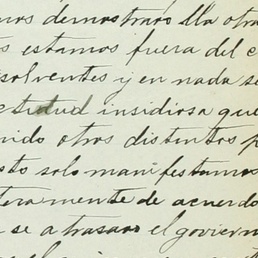 nos demostraro lla otra
s estamos fuera del c
solventes y en nada se
ctitud insidiosa que
nido otros distentos p
sto solo manifestamos
teramente de acuerdo
se a trasaro el goviern